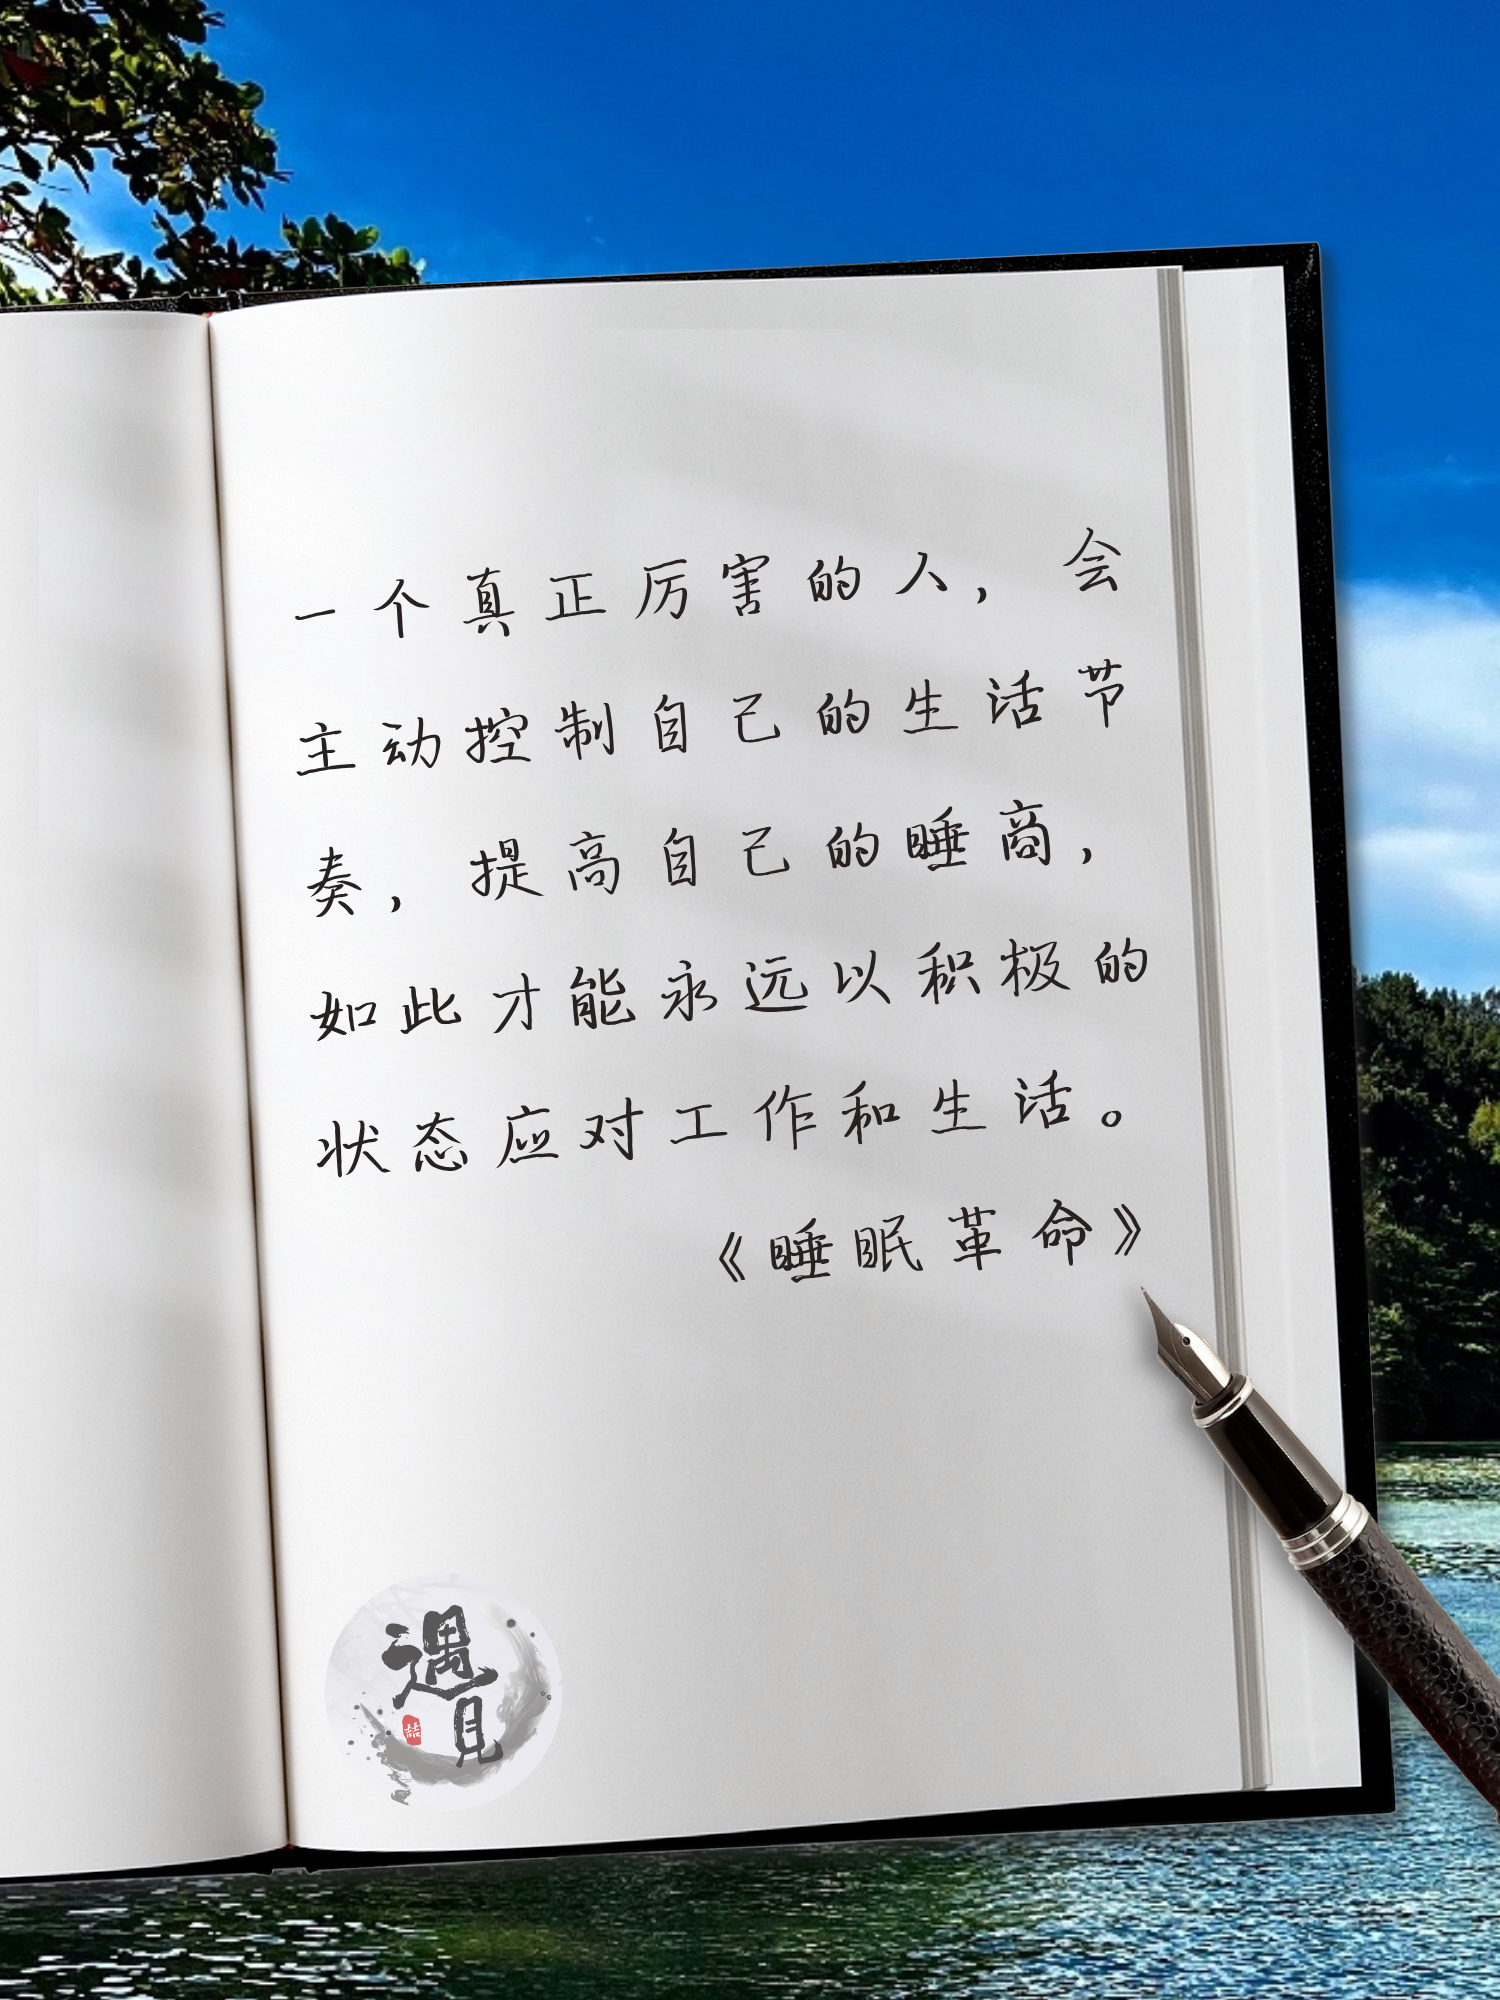 一个真正厉害的人，会
主动控制自己的生活节
奏，提高自己的睡商，
如此才能永远以积极的
状态应对工作和生活。
《睡眠革命》
遇
見
喆